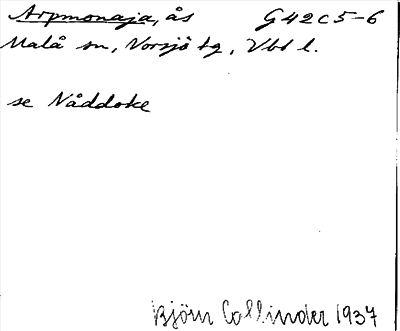 Arpmonaja, ås G42C5-6
Malå sn, Norsjö tg, Vbl l.
se Nåddoke
Björn Collinder 1937